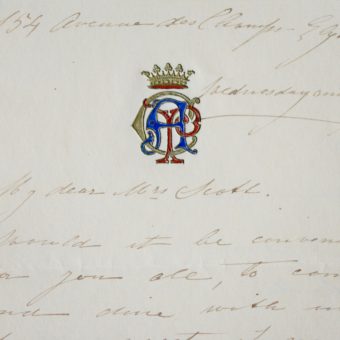 154 Avenue des Champs-Elys
Wednesday
My dear Mrs Scott.
Would it be conven
you all, to com
and dine with